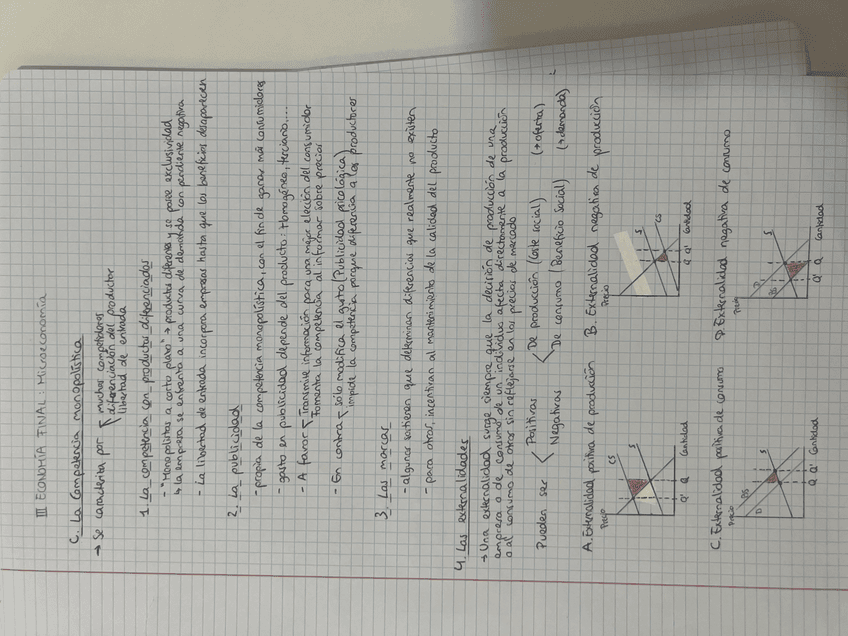 III ECONOMÍA FINAL: Microeconomía
C. La Competencia monopolística
→ Se caracteriza por
muchos competidores
diferenciación del productor
libertad de entrada
1. La competencia con productos diferenciados
- "Monopolistas a corto plazo" → productos diferentes y se posee exclusividad
↳ la empresa se enfrenta a una curva de demanda con pendiente negativa
- La libertad de entrada incorpora empresas hasta que los beneficios desaparecen
2. La publicidad
- propia de la competencia monopolística, con el fin de ganar más consumidores
- gasto en publicidad depende del producto: Homogéneo, terciario,...
- A favor
Transmite información para una mejor elección del consumidor
Fomenta la competencia al informar sobre precios
- En contra
sólo modifica el gusto (Publicidad psicológica)
Impide la competencia porque diferencia a los productores
3. Las marcas
- algunos sostienen que determinan diferencias que realmente no existen
- para otros, incentivan al mantenimiento de la calidad del producto
4. Las externalidades
→ Una externalidad surge siempre que la decisión de producción de una
empresa o de consumo de un individuo afecta directamente a la producción
o al consumo de otros sin reflejarse en los precios de mercado
Pueden ser
Positivas
Negativas
De producción (coste social) (→ oferta)
De consumo (Beneficio social) (→ demanda)
A. Externalidad positiva de producción
B. Externalidad negativa de producción
Precio
CS
S
Q' Q
Cantidad
Precio
S
CS
Q Q'
Cantidad
C. Externalidad positiva de consumo
D. Externalidad negativa de consumo
Precio
D
BS
S
Q Q'
Cantidad
Precio
D
BS
S
Q' Q
Cantidad